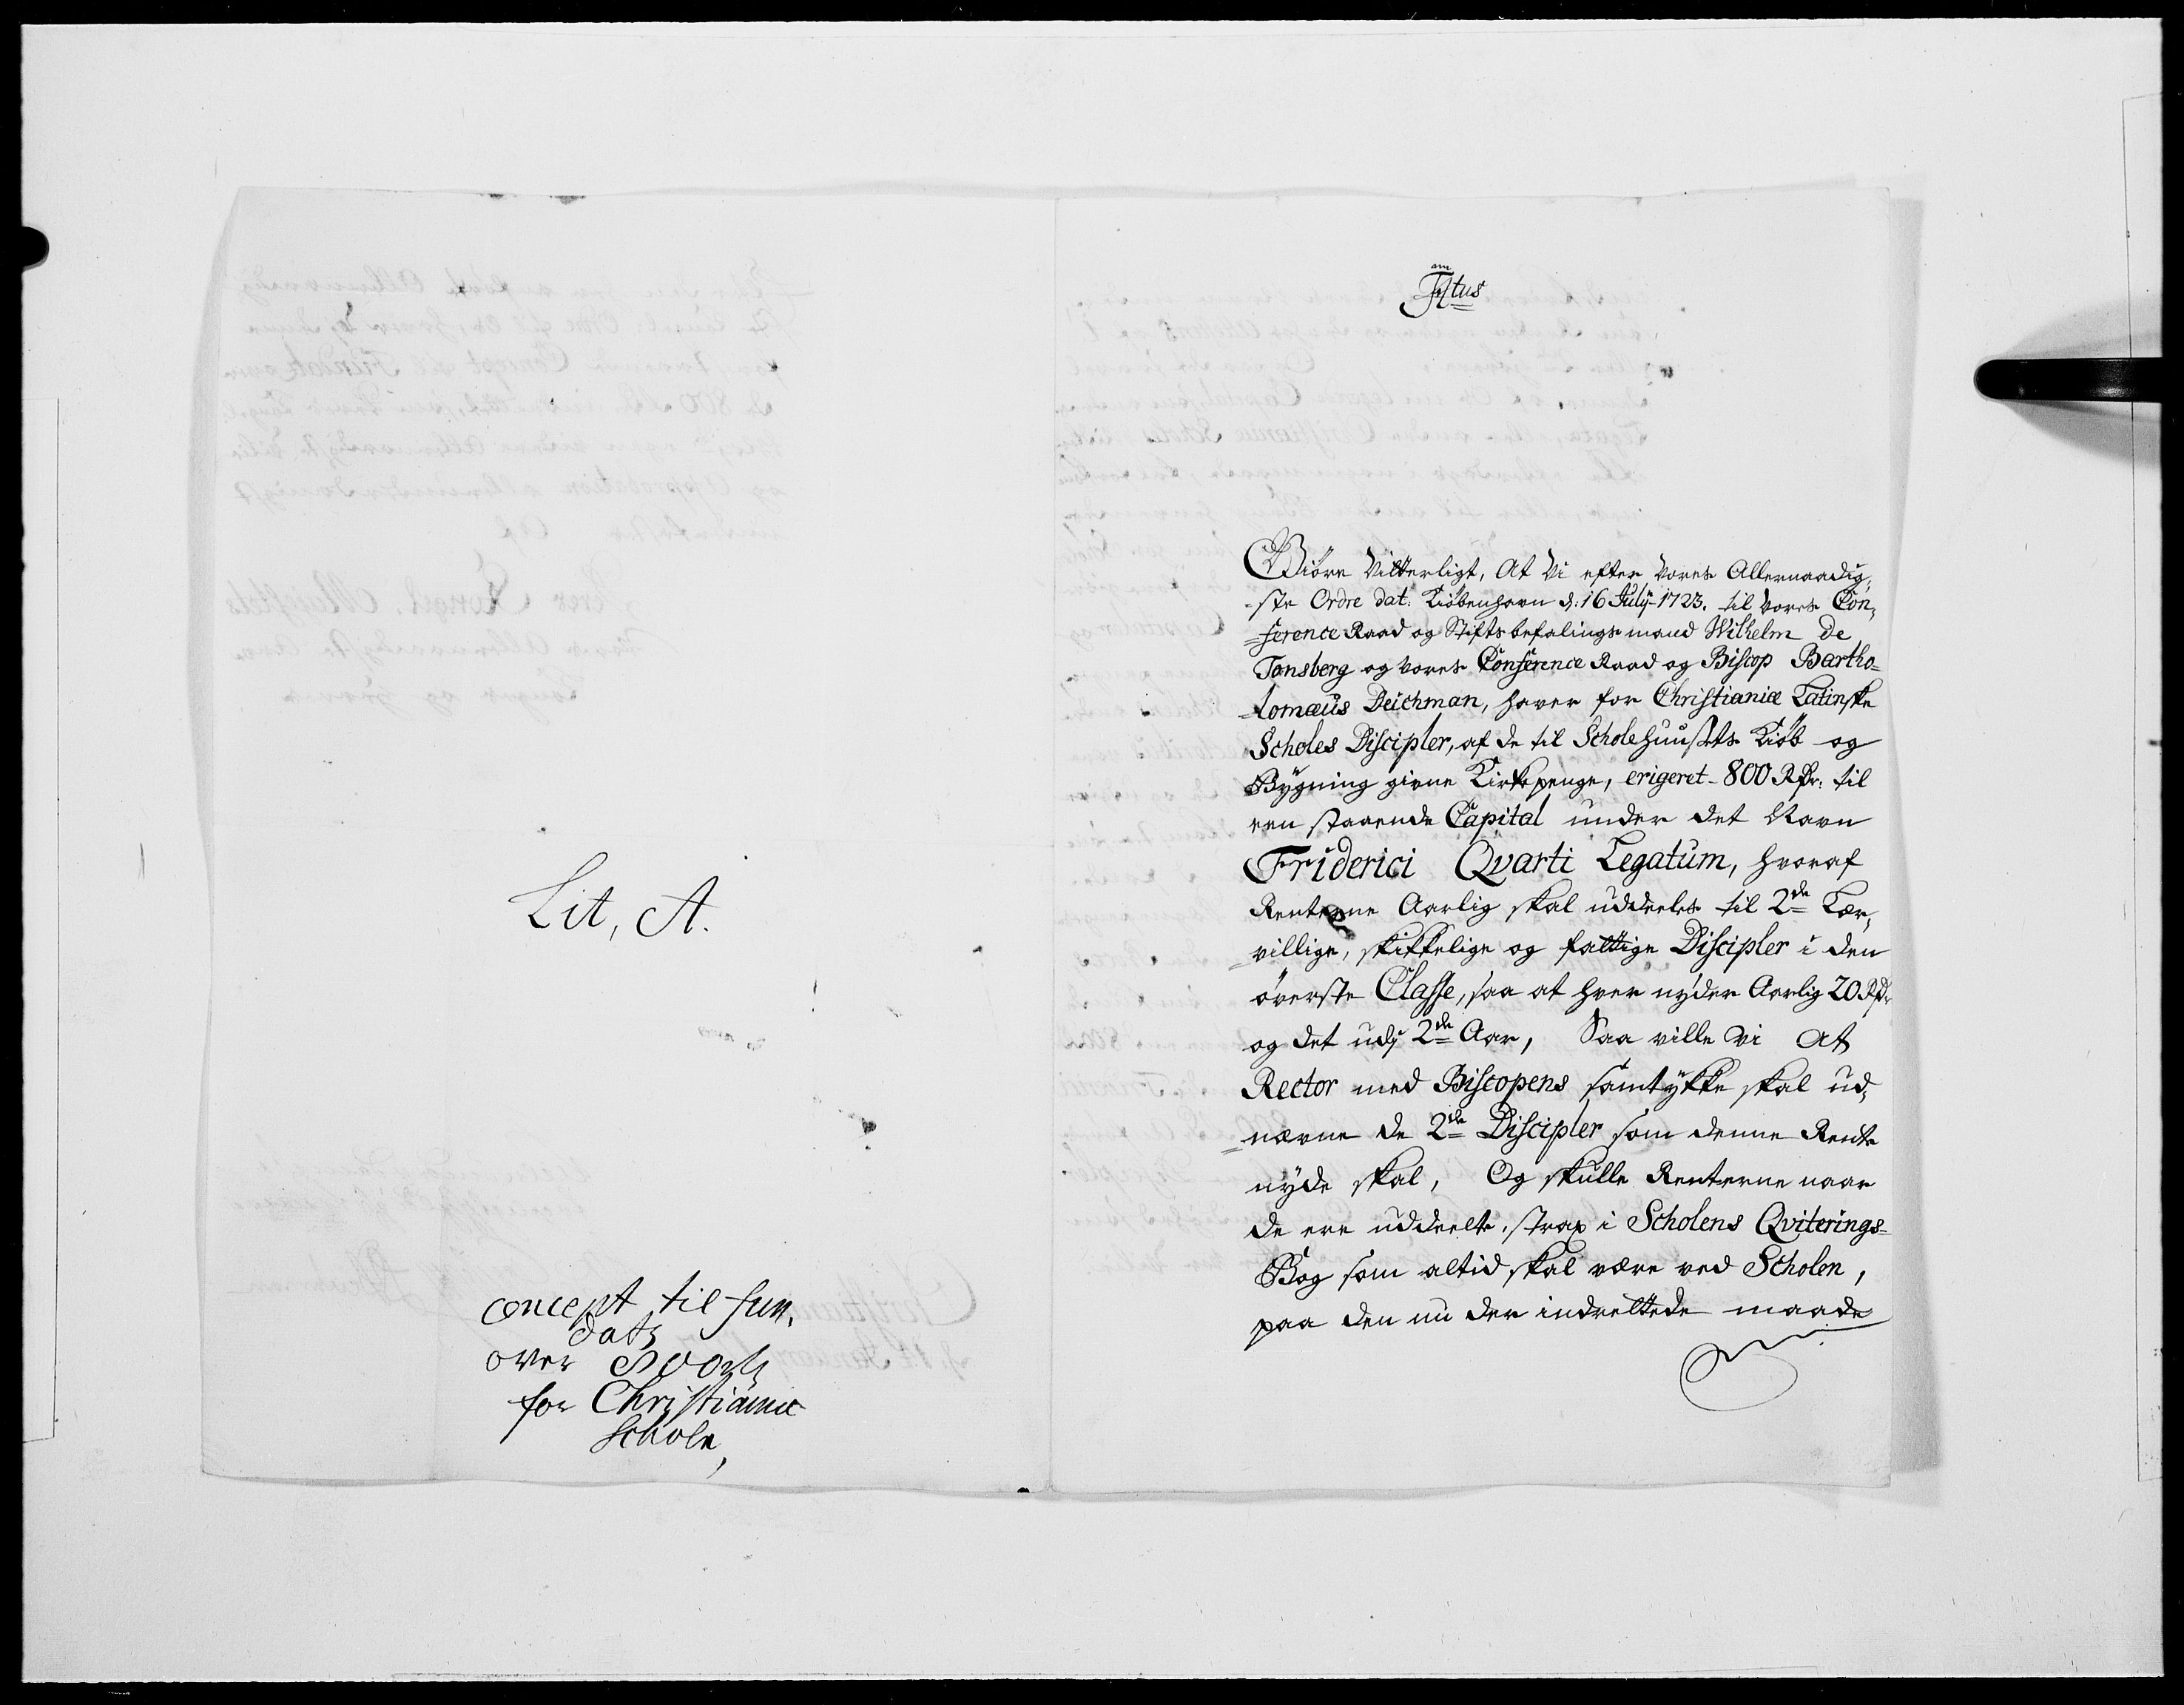 Lit, A.
concept til fun,
dats
over 800 rdr
for Christianiæ
Schole,
Titus
Giöre Vitterligt, At Vi efter Vores Allernaadig,
ste Ordre dat: Kiöbenhavn d: 16 Julij 1723. til Vores Con,
ference Raad og Stiftsbefalings mand Wilhelm de
Tonsberg og Vores Conference Raad og Biscop Bartho-
lomæus Deichman, haver for Christianiæ Latinske
Scholes Discipler, af de til Schole huusets Kiöb og
Bygning givne Kirkepenge, erigeret 800 Rdr: til
een staaende Capital under det Navn
Friderici Qvarti Legatum, hvoraf
Renterne Aarlig skal uddeeles til 2de Lær,
villige, skikkelige og fattige Discipler i den
överste Classe, saa at hver nyder Aarlig 20 Rdr
og det udj 2de Aar, Saa ville Vi At
Rector med Biscopens samtykke skal ud,
nævne de 2de Discipler som denne Rente
nyde skal, Og skulle Renterne naar
de ere uddeelte, strax i Scholens Qviterings-
Bog som altid skal være ved Scholen,
paa den nu der indrettede maade